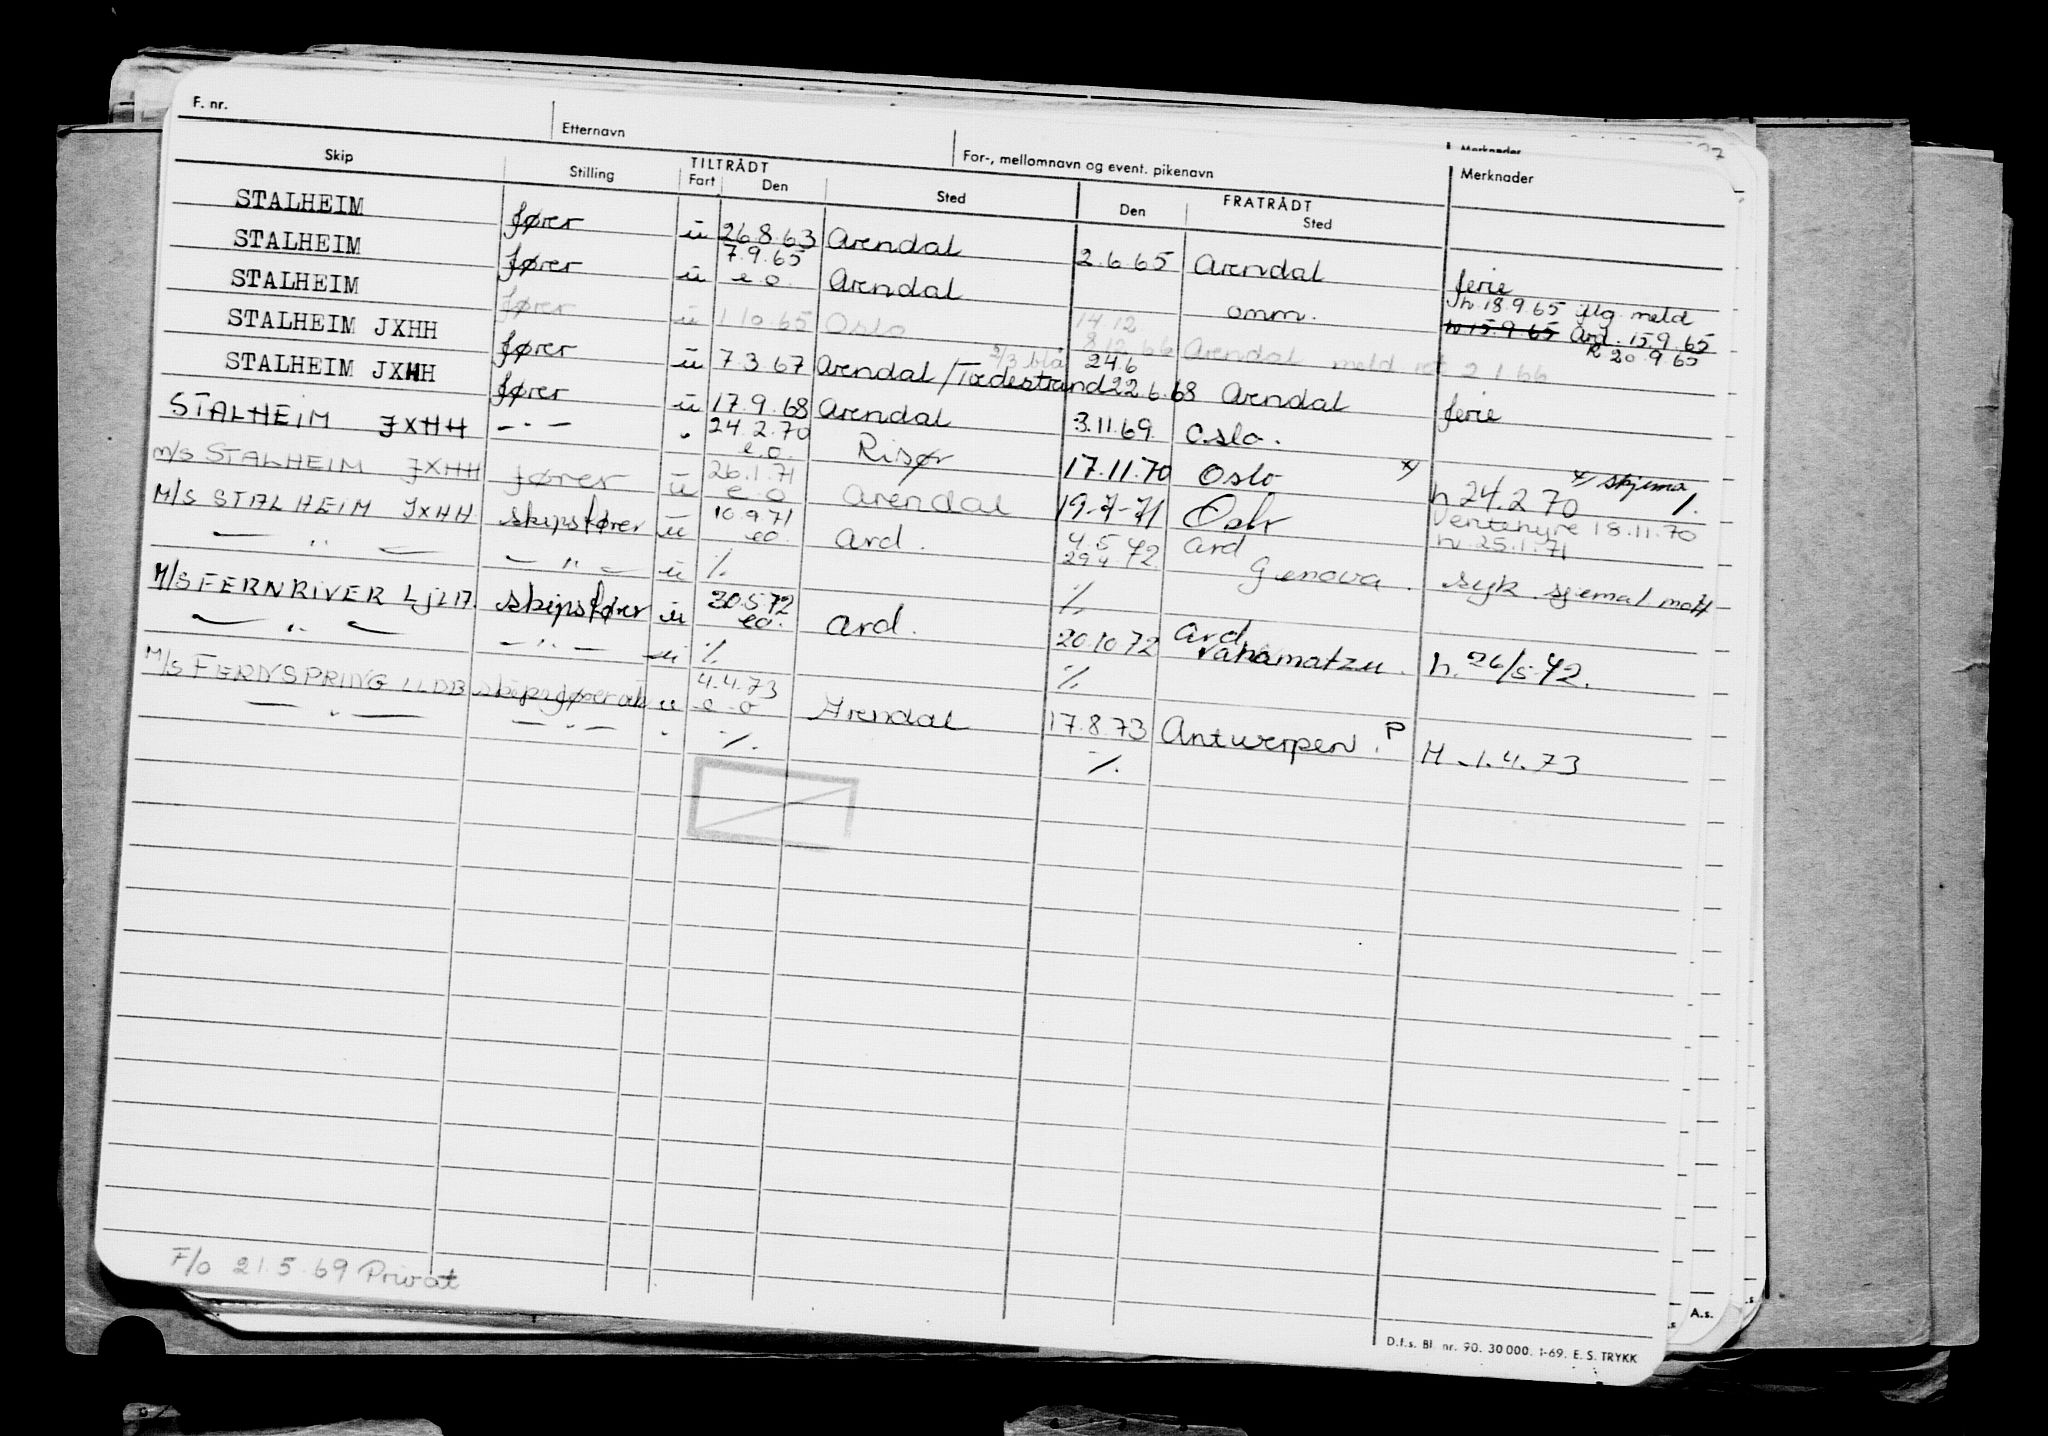 F. nr. Etternavn For-, mellomnavn og event. pikenavn Merknader
Skip Stilling TILTRÅDT Fart Den Sted FRATRÅDT Den Sted Merknader
STALHEIM fører ü 26.8.63 Arendal 2.6.65 Arendal ferie
STALHEIM fører ü 7.9.65 e.o. Arendal omm. h. 18.9.65 meld
h 15.9.65 Ard. 15.9.65
R 20.9.65
STALHEIM fører ü 1.10.65 Oslo 14.12 8.12.66 Arendal meld 2.1.66
STALHEIM JXHH fører ü 7.3.67 Arendal/Tvedestrand 2/3 blå 24.6 22.6.68 Arendal ferie
STALHEIM JXHH fører ü 17.9.68 Arendal 3.11.69 Oslo.
STALHEIM JXHH -"- " 24.2.70 e.o. Risør 17.11.70 Oslo x) h 24.2.70 x) skjema
m/s STALHEIM JXHH fører ü 26.1.71 e.o Arendal 19-7-71 Oslo Ventehyre 18.11.70
h. 25.1.71
M/S STALHEIM JXHH skipsfører ü 10.9.71 eo. Ard. 4.5.72 29.4 Ard Genova. syk
— " — — " — ü %. %.
M/S FERNRIVER LJLI7. skipsfører ü 30.5.72 eo. Ard. 20.10.72 Ard h. 26/5-72.
— " — — " — ü %. %.
M/S FERNSPRING LLDB skipsfører ü 4.4.73 e.o Arendal 17.8.73 Antwerpen. P H. 1.4.73
— " — — " — " %. %.
F/o 21.5.69 Privat
D.f.s. Bl. nr. 90. 30 000. 1-69. E. S. TRYKK
A.s.